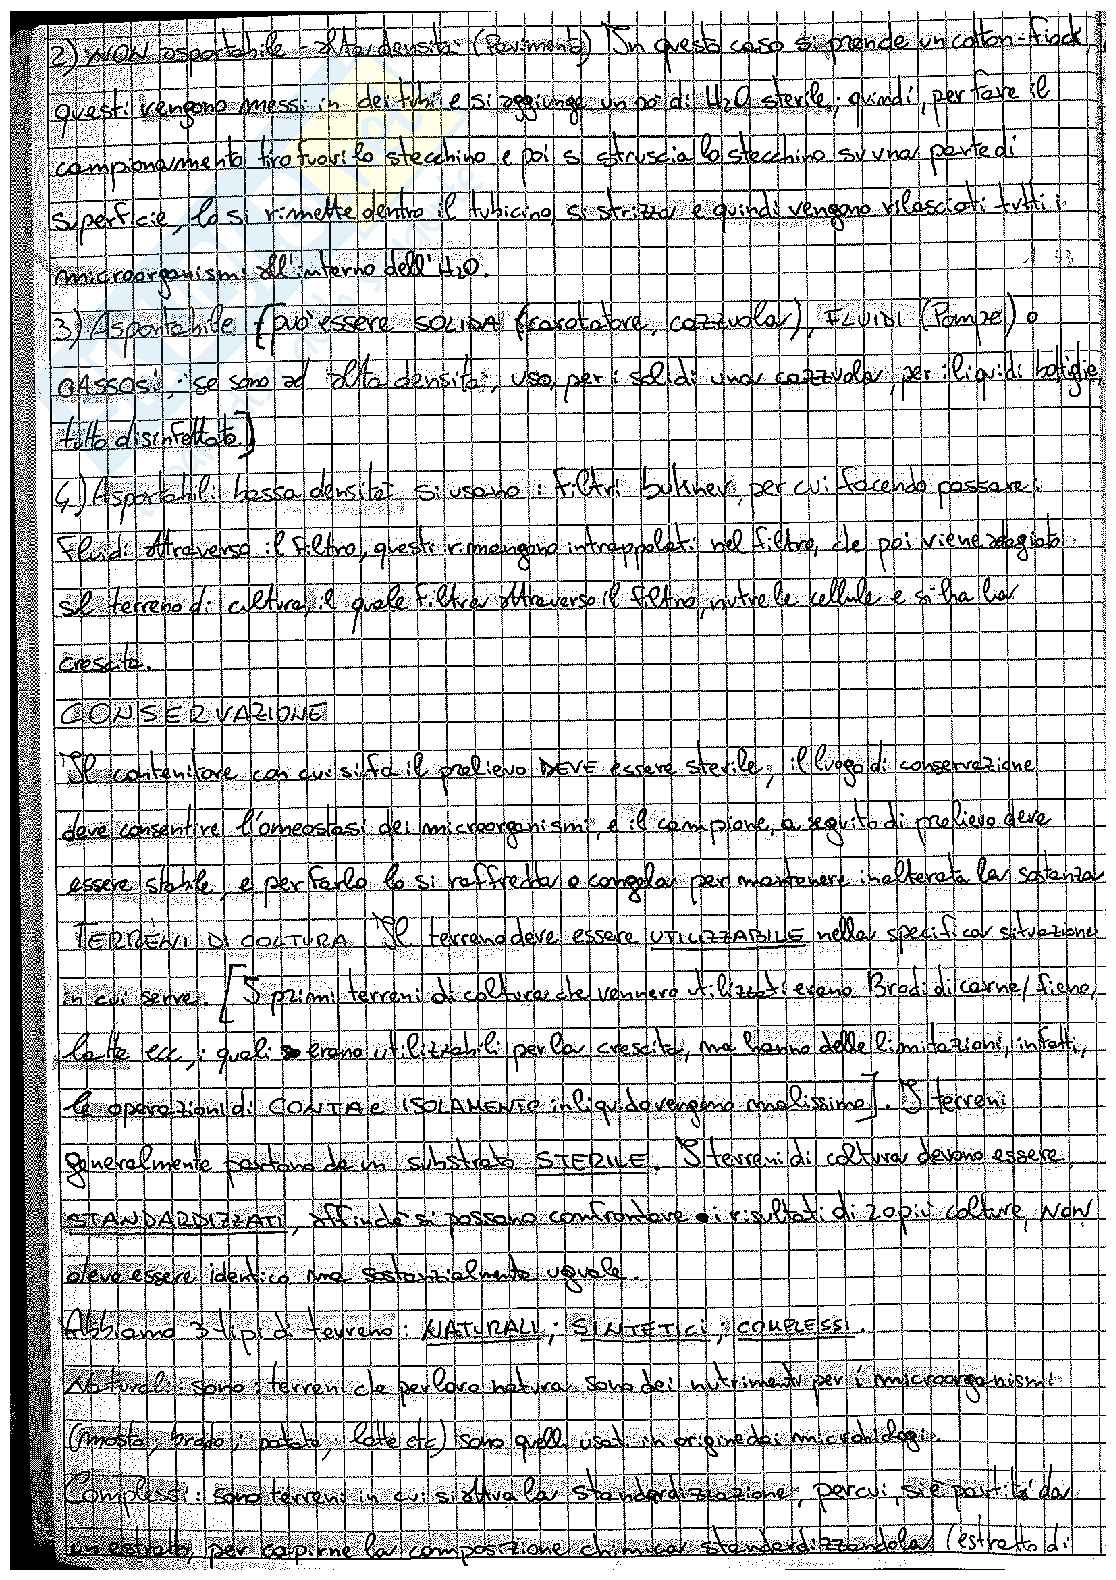 2) NON asportabile - alta densità (Pavimento) In questo caso si prende un cotton-fiock,
questi vengono messi in dei tubi e si aggiunge un po' di H2O sterile; quindi, per fare il
campionamento tiro fuori lo stecchino e poi si struscia lo stecchino su una parte di
superficie, lo si rimette dentro il tubicino, si strizza e quindi vengono rilasciati tutti i
microorganismi all'interno dell'H2O.
3) Asportabile [può essere SOLIDA (carotatore, cazzuola), FLUIDI (Pompe) o
GASSOSI; se sono ad alta densità, uso, per i solidi una cazzuola, per i liquidi bottiglie,
tutto disinfettato.]
4) Asportabili bassa densità: si usano i filtri bukner, per cui facendo passare i
fluidi attraverso il filtro, questi rimangono intrappolati nel filtro, che poi viene adagiato
sul terreno di coltura, il quale filtra attraverso il filtro, nutre le cellule e si ha la
crescita.
CONSERVAZIONE
Il contenitore con cui si fa il prelievo DEVE essere sterile; il luogo di conservazione
deve consentire l'omeostasi dei microorganismi, e il campione, a seguito di prelievo deve
essere stabile, e per farlo lo si raffredda o congela per mantenere inalterata la sostanza
TERRENI DI COLTURA Il terreno deve essere UTILIZZABILE nella specifica situazione
in cui serve. [I primi terreni di coltura che vennero utilizzati erano Brodi di carne/fieno,
latte ecc, i quali erano utilizzabili per la crescita, ma hanno delle limitazioni, infatti,
le operazioni di CONTA e ISOLAMENTO in liquido vengono malissimo]. I terreni
generalmente partono da un substrato STERILE. I terreni di coltura devono essere
STANDARDIZZATI, affinché si possano confrontare i risultati di 2 o più colture, NON
deve essere identico ma sostanzialmente uguale.
Abbiamo 3 tipi di terreno: NATURALI; SINTETICI; COMPLESSI.
Naturali: sono i terreni che per loro natura sono dei nutrimenti per i microorganismi
(mosto, brodo, patate, latte etc) sono quelli usati in origine dai microbiologi.
Complessi: sono terreni in cui si attua la standardizzazione, per cui, si è partiti da
un estratto, per capirne la composizione chimica standardizzandola (estratto di